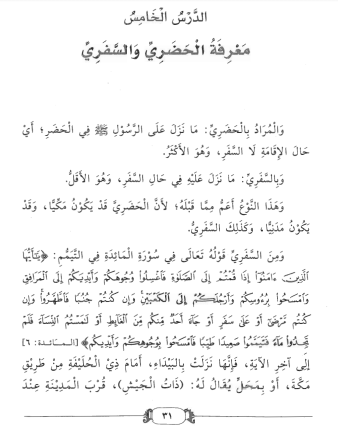 الدَّرْسُ الْخَامِسُ
مَعْرِفَةُ الْحَضَرِيِّ وَالسَّفَرِيِّ
وَالْمُرَادُ بِالْحَضَرِيِّ: مَا نَزَلَ عَلَى الرَّسُولِ ﷺ فِي الْحَضَرِ؛ أَيْ
حَالَ الْإِقَامَةِ لَا السَّفَرِ، وَهُوَ الْأَكْثَرُ.
وَبِالسَّفَرِيِّ: مَا نَزَلَ عَلَيْهِ فِي حَالِ السَّفَرِ، وَهُوَ الْأَقَلُّ.
وَهَذَا النَّوْعُ أَعَمُّ مِمَّا قَبْلَهُ؛ لأَنَّ الْحَضَرِيَّ قَدْ يَكُونُ مَكِّيًّا، وَقَدْ
يَكُونُ مَدَنِيًّا، وَكَذَلِكَ السَّفَرِيُّ.
وَمِنَ السَّفَرِيِّ قَوْلُهُ تَعَالَى فِي سُورَةِ الْمَائِدَةِ فِي التَّيَمُّمِ: ﴿يَٰٓأَيُّهَا
ٱلَّذِينَ ءَامَنُوٓا۟ إِذَا قُمْتُمْ إِلَى ٱلصَّلَوٰةِ فَٱغْسِلُوا۟ وُجُوهَكُمْ وَأَيْدِيَكُمْ إِلَى ٱلْمَرَافِقِ
وَٱمْسَحُوا۟ بِرُءُوسِكُمْ وَأَرْجُلَكُمْ إِلَى ٱلْكَعْبَيْنِ وَإِن كُنتُمْ جُنُبًا فَٱطَّهَّرُوا۟ وَإِن
كُنتُم مَّرْضَىٰٓ أَوْ عَلَىٰ سَفَرٍ أَوْ جَآءَ أَحَدٌ مِّنكُم مِّنَ ٱلْغَآئِطِ أَوْ لَٰمَسْتُمُ ٱلنِّسَآءَ فَلَمْ
تَجِدُوا۟ مَآءً فَتَيَمَّمُوا۟ صَعِيدًا طَيِّبًا فَٱمْسَحُوا۟ بِوُجُوهِكُمْ وَأَيْدِيكُم﴾ [المائدة: ٦]
إِلَى آخِرِ الآيَةِ، فَإِنَّهَا نَزَلَتْ بِالْبَيْدَاءِ، أَمَامَ ذِي الْحُلَيْفَةِ مِنْ طَرِيقِ
مَكَّةَ، أَوْ بِمَحَلٍّ يُقَالُ لَهُ: (ذَاتُ الْجَيْشِ)، قُرْبَ الْمَدِينَةِ عِنْدَ
٣١